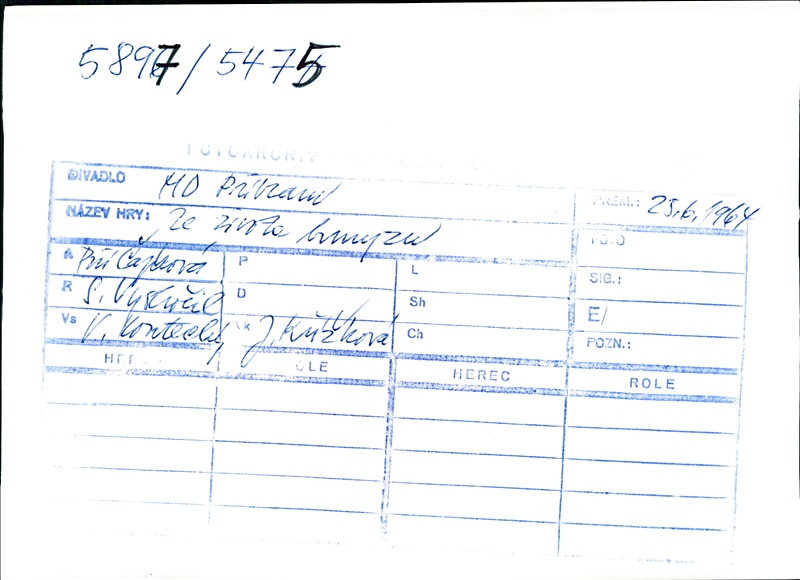 5897/5475
FOTOARCHIV
DIVADLO MD Příbram PREM.: 25.6.1964
NÁZEV HRY: Ze života hmyzu FOTO
A Bří Čapkové P L SIG.:
R S. Vyskočil D Sh E/
Vs V. Konteck k J. Křížková Ch POZN.:
HEREC ROLE HEREC ROLE